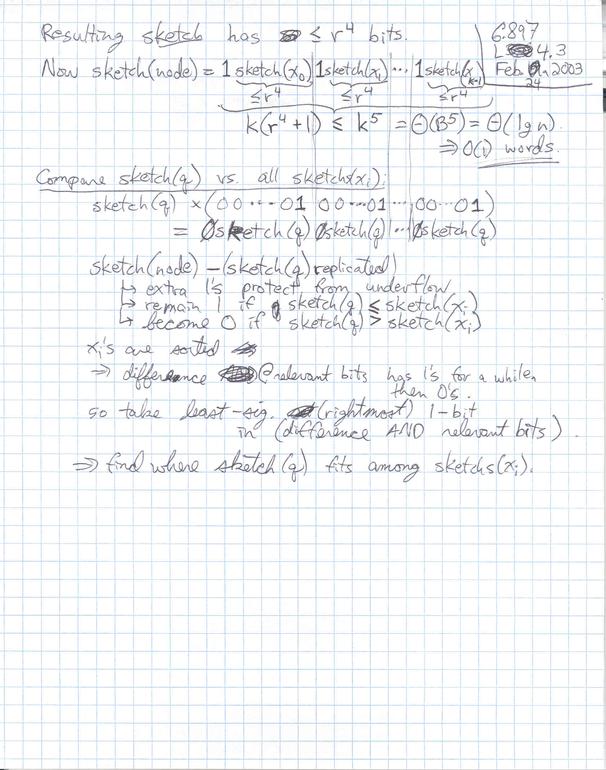 Resulting sketch has ≤ r⁴ bits.
6.897
L 4.3
Feb 24, 2003
Now sketch(node) = 1 sketch(x₀) | 1 sketch(x₁) | ... | 1 sketch(xₖ₋₁)
≤r⁴ ≤r⁴ ≤r⁴
k(r⁴+1) ≤ k⁵ = Θ(B⁵) = Θ(lg n).
⇒ O(1) words.
Compare sketch(q) vs. all sketchs(xᵢ):
sketch(q) × (00...01 | 00...01 ... | 00...01)
= 0sketch(q) 0sketch(q) | ... | 0sketch(q)
sketch(node) - (sketch(q) replicated)
↳ extra 1's protect from underflow
↳ remain 1 if sketch(q) ≤ sketch(xᵢ)
↳ become 0 if sketch(q) > sketch(xᵢ)
xᵢ's are sorted
⇒ difference @ relevant bits has 1's for a while,
then 0's.
so take least-sig. (rightmost) 1-bit
in (difference AND relevant bits).
⇒ find where sketch(q) fits among sketchs(xᵢ).